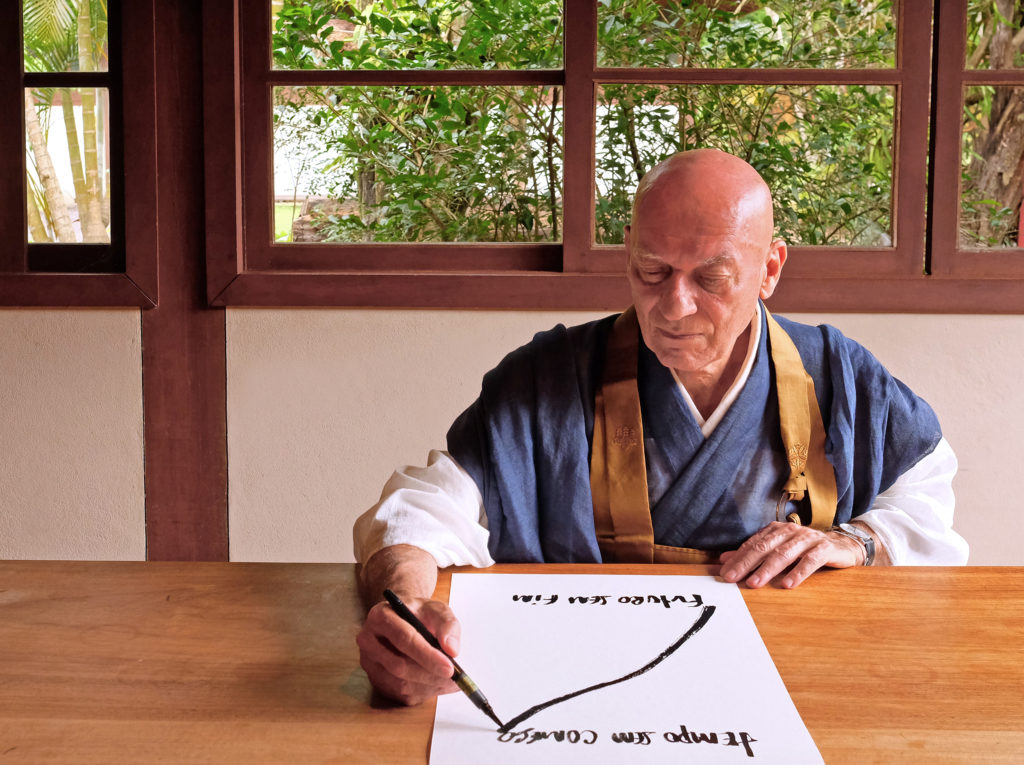 tempo sem começo
Futuro sem Fim